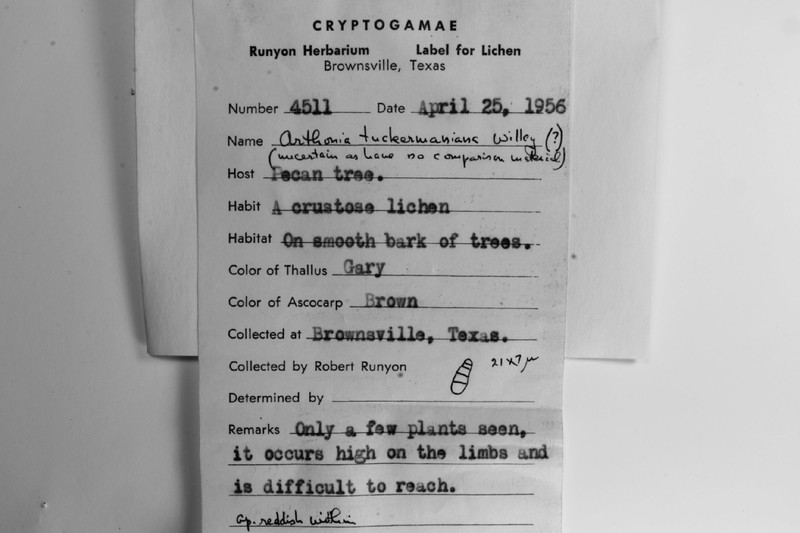 CRYPTOGAMAE
Runyon Herbarium Label for Lichen
Brownsville, Texas
Number 4511 Date April 25, 1956
Name Arthonia tuckermaniana Willey (?)
(uncertain as have no comparison material)
Host Pecan tree.
Habit A crustose lichen
Habitat On smooth bark of trees.
Color of Thallus Gary
Color of Ascocarp Brown
Collected at Brownsville, Texas.
Collected by Robert Runyon 21 x 7 µ
Determined by
Remarks Only a few plants seen,
it occurs high on the limbs and
is difficult to reach.
ap. reddish within